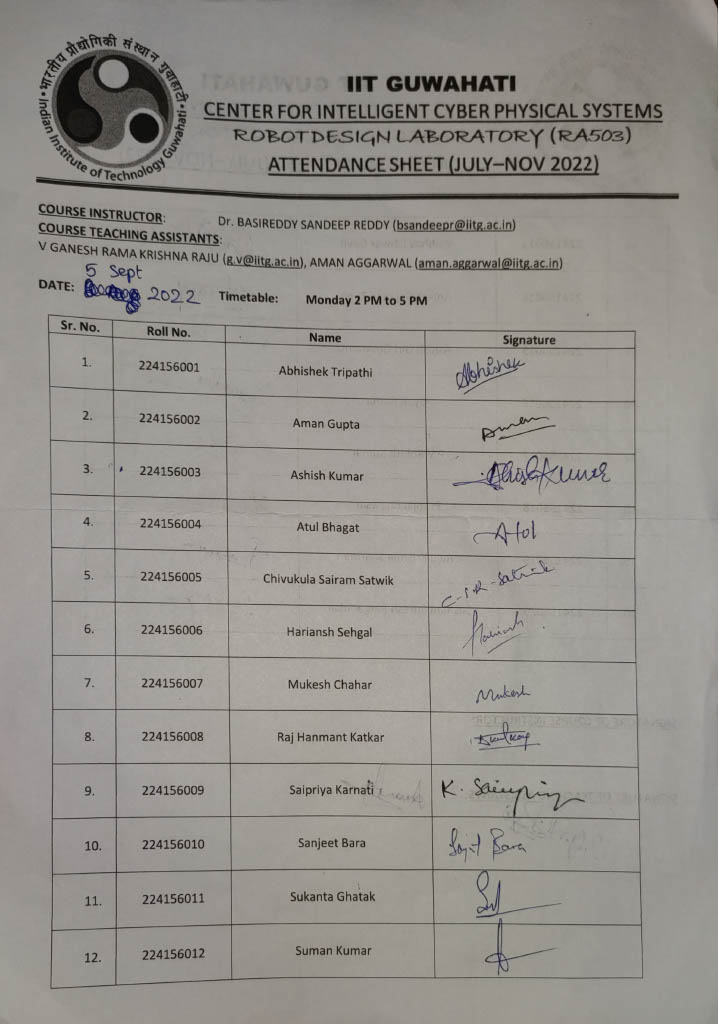 भारतीय प्रौद्योगिकी संस्थान गुवाहाटी
Indian Institute of Technology Guwahati
IIT GUWAHATI
CENTER FOR INTELLIGENT CYBER PHYSICAL SYSTEMS
ROBOT DESIGN LABORATORY (RA503)
ATTENDANCE SHEET (JULY–NOV 2022)
COURSE INSTRUCTOR: Dr. BASIREDDY SANDEEP REDDY (bsandeepr@iitg.ac.in)
COURSE TEACHING ASSISTANTS:
V GANESH RAMA KRISHNA RAJU (g.v@iitg.ac.in), AMAN AGGARWAL (aman.aggarwal@iitg.ac.in)
5 Sept
DATE: 2022 Timetable: Monday 2 PM to 5 PM
Sr. No. Roll No. Name Signature
1. 224156001 Abhishek Tripathi Abhishek
2. 224156002 Aman Gupta Aman
3. 224156003 Ashish Kumar AshishKumar
4. 224156004 Atul Bhagat Atul
5. 224156005 Chivukula Sairam Satwik C-S-R-Satwik
6. 224156006 Hariansh Sehgal Hariansh
7. 224156007 Mukesh Chahar Mukesh
8. 224156008 Raj Hanmant Katkar
9. 224156009 Saipriya Karnati K. Saipriya
10. 224156010 Sanjeet Bara Sanjit Bara
11. 224156011 Sukanta Ghatak
12. 224156012 Suman Kumar